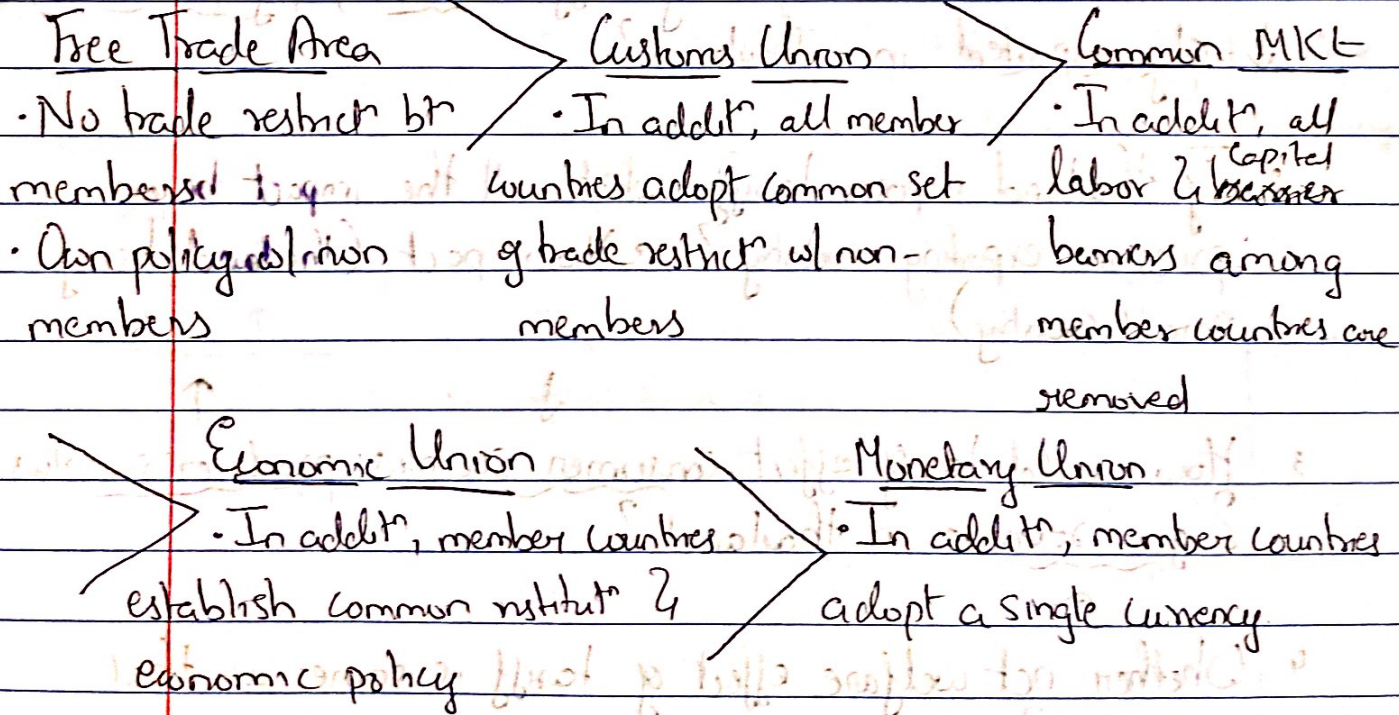 Free Trade Area
· No trade restrictⁿ btⁿ
members
· Own policy w/ non
members
Customs Union
· In additⁿ, all member
countries adopt common set
of trade restrictⁿ w/ non-
members
Common MKt
· In additⁿ, all
labor & capital
barriers among
member countries are
removed
Economic Union
· In additⁿ, member countries
establish common institutⁿ &
economic policy
Monetary Union
· In additⁿ, member countries
adopt a single currency